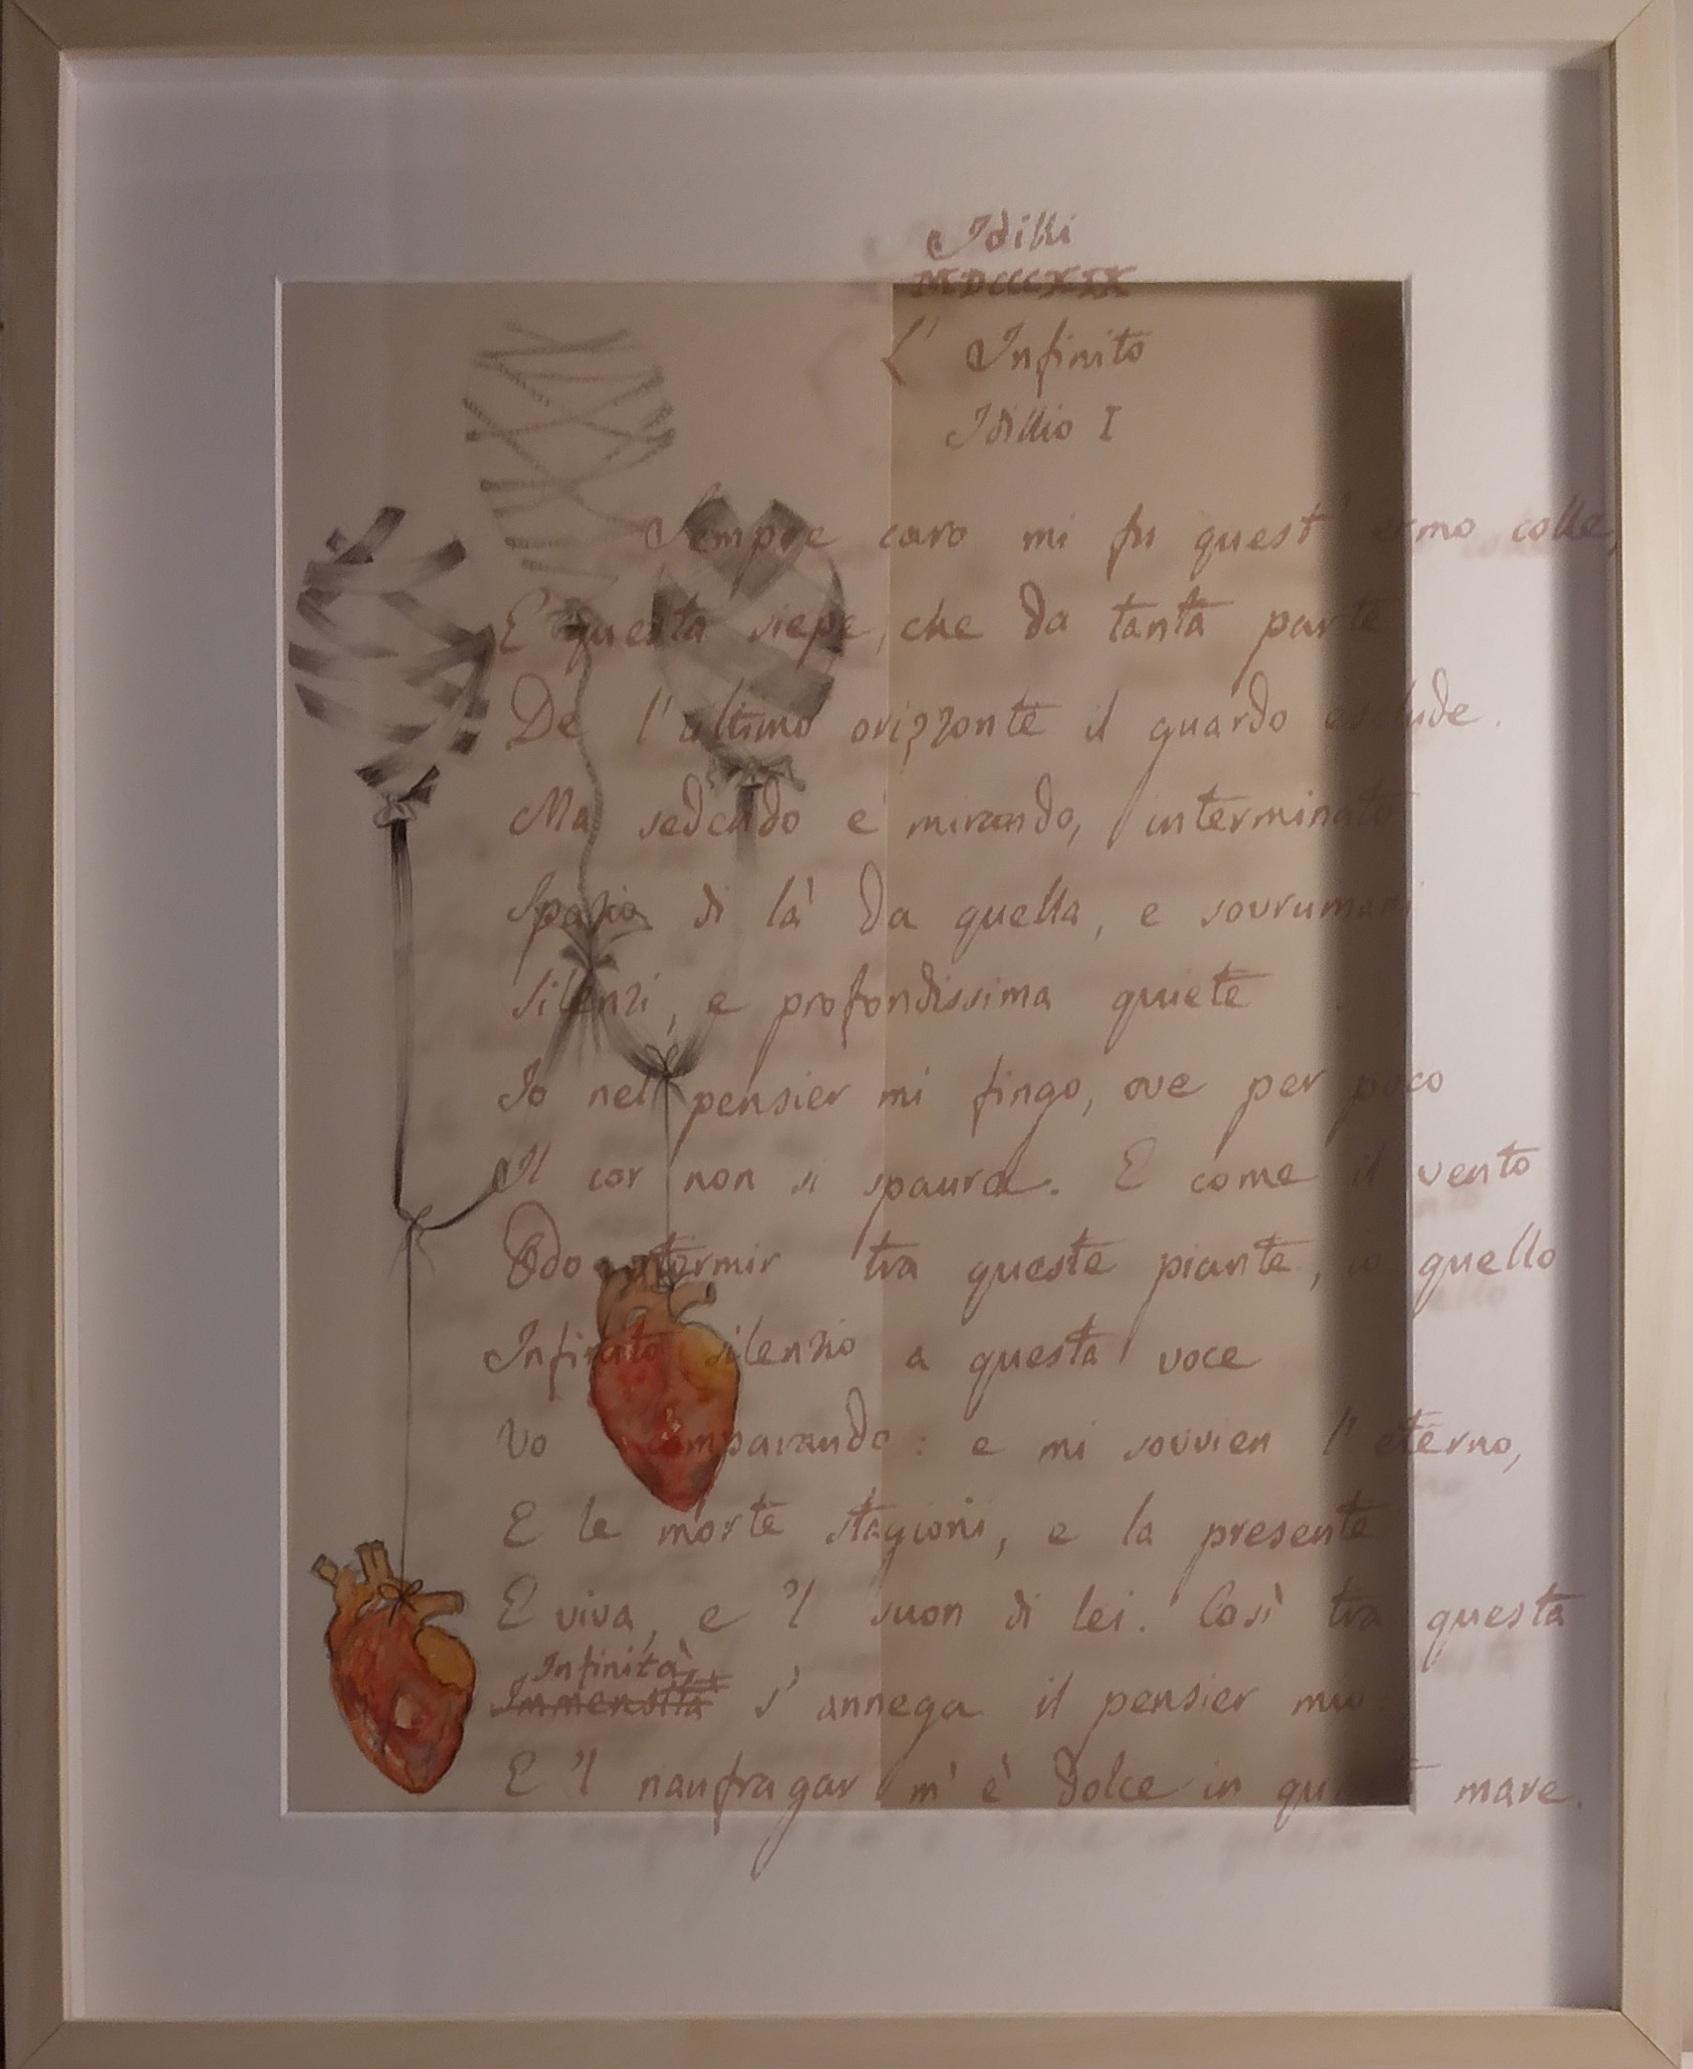 Idilli
MDCCCXIX
L' Infinito
Idillio I
Sempre caro mi fu quest' ermo colle,
E questa siepe, che da tanta parte
De l'ultimo orizzonte il guardo esclude.
Ma sedendo e mirando, interminato
Spazio di là da quella, e sovrumani
Silenzi, e profondissima quiete
Io nel pensier mi fingo, ove per poco
Il cor non si spaura. E come il vento
Odo stormir tra queste piante, io quello
Infinito silenzio a questa voce
Vo comparando: e mi sovvien l'eterno,
E le morte stagioni, e la presente
E viva, e 'l suon di lei. Così tra questa
Infinità
Immensità s'annega il pensier mio
E 'l naufragar m'è dolce in questo mare.